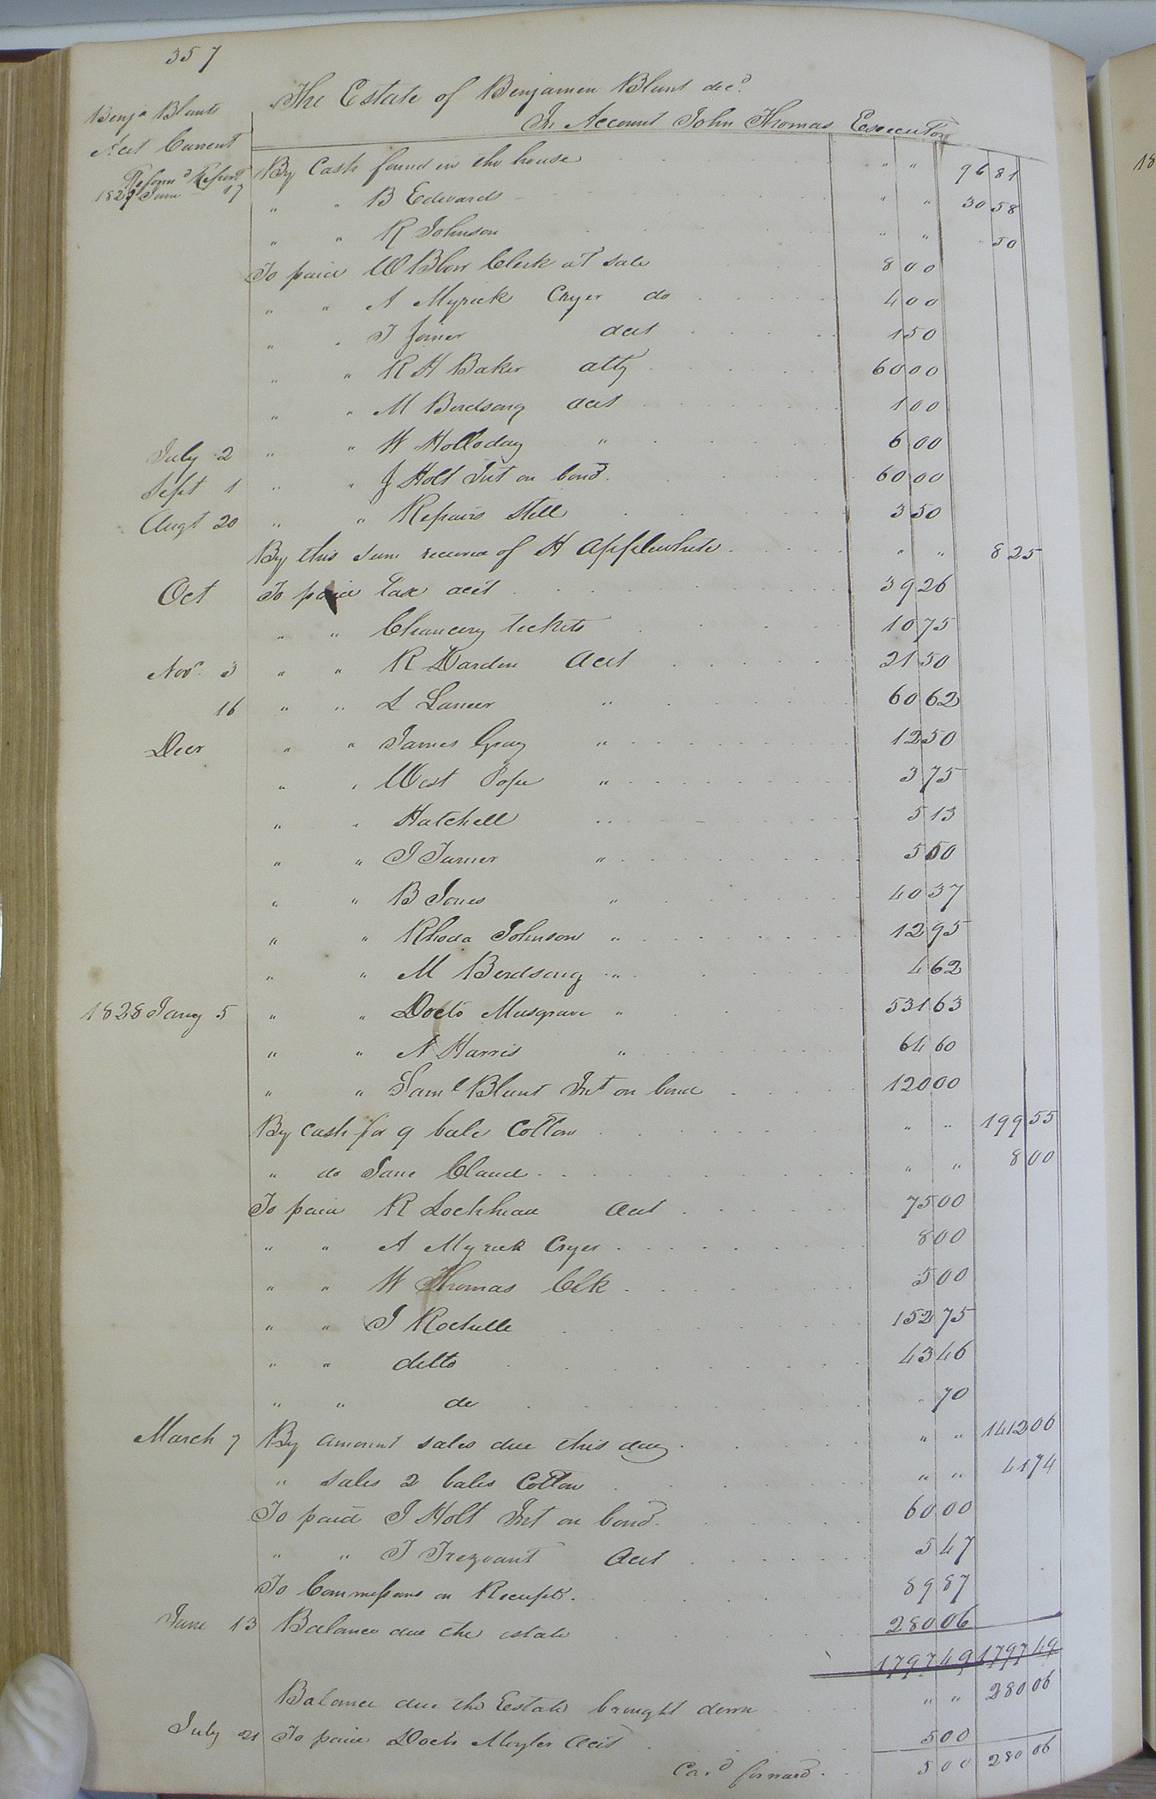 357
The Estate of Benjamin Blunt decd
In Account John Thomas Executor
Benja Blunts
Acct Current
1827 June 17 By Cash found in the house " " 96 81
" " B Edwards " " 30 58
" " R Johnson " " 50
To paid W Blow Clerk at sale 8 00
" " A Myrick Cryer do 4 00
" " J Joiner acct 1 50
" " R H Baker atty 60 00
" " M Birdsong acct 1 00
July 2 " " W Holloday " 6 00
Sept 1 " " J Holt Int on bond 60 00
Augt 20 " " Repairs Still 3 50
By this sum received of H Applewhite " " 8 25
Oct To paid Tax acct 39 26
" " Chancery tickets 10 75
Novr 3 " " R Darden Acct 21 50
16 " " L Lanier " 60 62
Decr " " James Gray " 12 50
" " West Pope " 3 75
" " Hatchell " 5 13
" " J Turner " 5 50
" " B Jones " 40 37
" " Rhoda Johnson " 12 95
" " M Berdsong " 4 62
1828 Jany 5 " " Docto Musgrave " 531 63
" " N Harris " 64 60
" " Saml Blunt Int on bond 120 00
By cash for 9 bale Cotton " " 199 55
" do Jane Claud " " 8 00
To paid R Lockhead acct 75 00
" " A Myrick Cryer 8 00
" " W Thomas Clk 5 00
" " J Rochelle 152 75
" " ditto 43 46
" " do 70
March 7 By amount sales due this day " " 1412 06
" sales 2 bales Cotton " " 41 74
To paid J Holt Int on bond 60 00
" " J Trezvant Acct 5 47
To Commissions on Receipts 89 87
June 13 Balance due the estate 280 06
1797 49 1797 49
Balance due the Estate brought down " " 280 06
July 21 To paid Doctr acct 5 00
Card forward 5 00 280 06
18